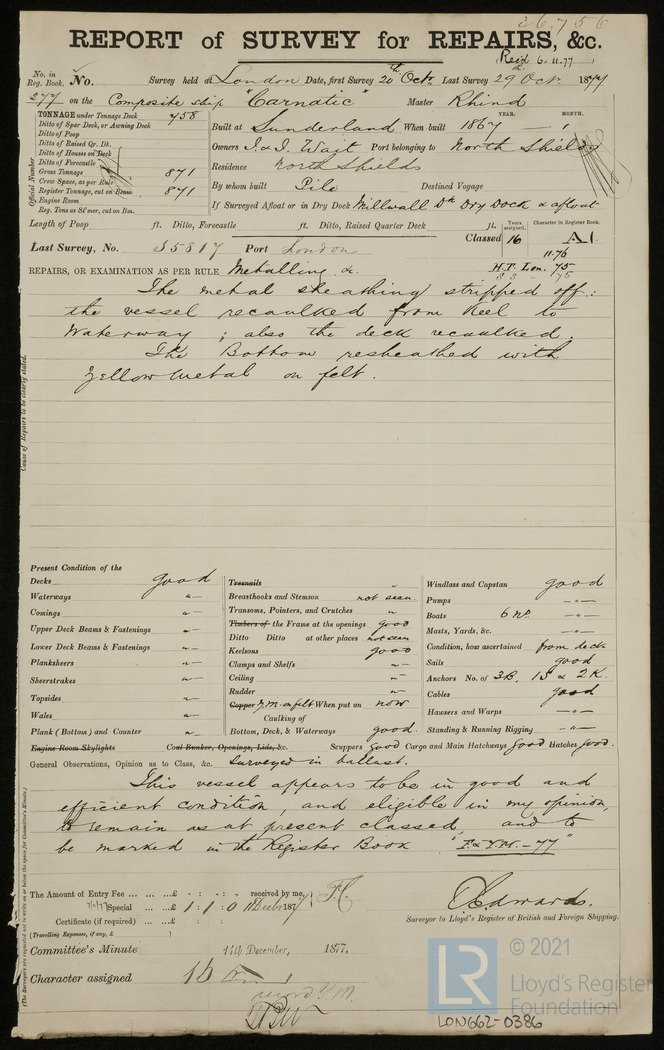 36756
REPORT of SURVEY for REPAIRS, &c.
Rec'd 6-11-77
No. in Reg. Book. No. Survey held at London Date, first Survey 20th Oct. Last Survey 29 Oct. 1877
277 on the Composite ship "Carnatic" Master Rhind
TONNAGE under Tonnage Deck 758
Ditto of Spar Deck, or Awning Deck
Ditto of Poop
Ditto of Raised Qr. Dk.
Ditto of Houses on Deck
Ditto of Forecastle
Gross Tonnage 871
Crew Space, as per Rule
Register Tonnage, cut on Beam 871
Engine Room
Reg. Tons as St'mer, cut on Bm.
Official Number
YEAR. MONTH.
Built at Sunderland When built 1867 — 1
Owners J. & J. Wait Port belonging to North Shields
Residence North Shields
By whom built Pile Destined Voyage
If Surveyed Afloat or in Dry Dock Millwall Dk Dry Dock & afloat
Length of Poop ft. Ditto, Forecastle ft. Ditto, Raised Quarter Deck ft.
Years assigned. Character in Register Book.
Classed 16 A1
11.76
Last Survey, No. 35817 Port London
H.T. Lon. 75
REPAIRS, OR EXAMINATION AS PER RULE Metalling &c.
The metal sheathing stripped off:
the vessel recaulked from keel to
Waterway; also the deck recaulked.
The Bottom resheathed with
Yellow Metal on felt.
Cause of Repairs to be clearly stated.
Present Condition of the
Decks good
Waterways "
Comings "
Upper Deck Beams & Fastenings "
Lower Deck Beams & Fastenings "
Planksheers "
Sheerstrakes "
Topsides "
Wales "
Plank (Bottom) and Counter "
Engine Room Skylights Coal Bunker, Openings, Lids, &c. Scuppers Good Cargo and Main Hatchways Good Hatches Good.
Treenails "
Breasthooks and Stemson not seen.
Transoms, Pointers, and Crutches "
Timbers of the Frame at the openings good
Ditto Ditto at other places not seen
Keelsons good
Clamps and Shelfs "
Ceiling "
Rudder "
Copper Y.M. on felt When put on now
Caulking of
Bottom, Deck, & Waterways good.
Windlass and Capstan good
Pumps "
Boats 6 No. "
Masts, Yards, &c. "
Condition, how ascertained from deck
Sails good
Anchors No. of 3B, 1S & 2K.
Cables good
Hawsers and Warps "
Standing & Running Rigging "
General Observations, Opinion as to Class, &c. Surveyed in ballast.
This vessel appears to be in good and
efficient condition, and eligible in my opinion,
to remain as at present classed, and to
be marked in the Register Book "F. & Y.M. - 77"
The Amount of Entry Fee £ : : received by me,
Special £ 1 : 1 : 0 187
Certificate (if required) £ : :
(Travelling Expenses, if any, £ )
Edwards.
Surveyor to Lloyd's Register of British and Foreign Shipping.
Committee's Minute 11th December, 1877.
Character assigned 16 A 1
© 2021
LR
Lloyd's Register
Foundation
LON662-0386